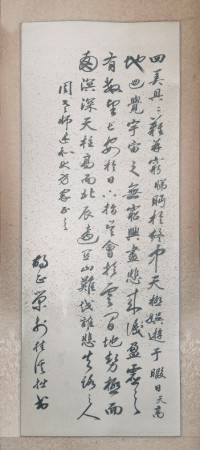 四美具二難并窮睇眄於中天極娛遊于暇日天高
地迥覺宇宙之無窮興盡悲來識盈虛之
有數望長安於日下指吳會於雲間地勢極而
南溟深天柱高而北辰遠關山難越誰悲失路之人
周老師方家正之
書